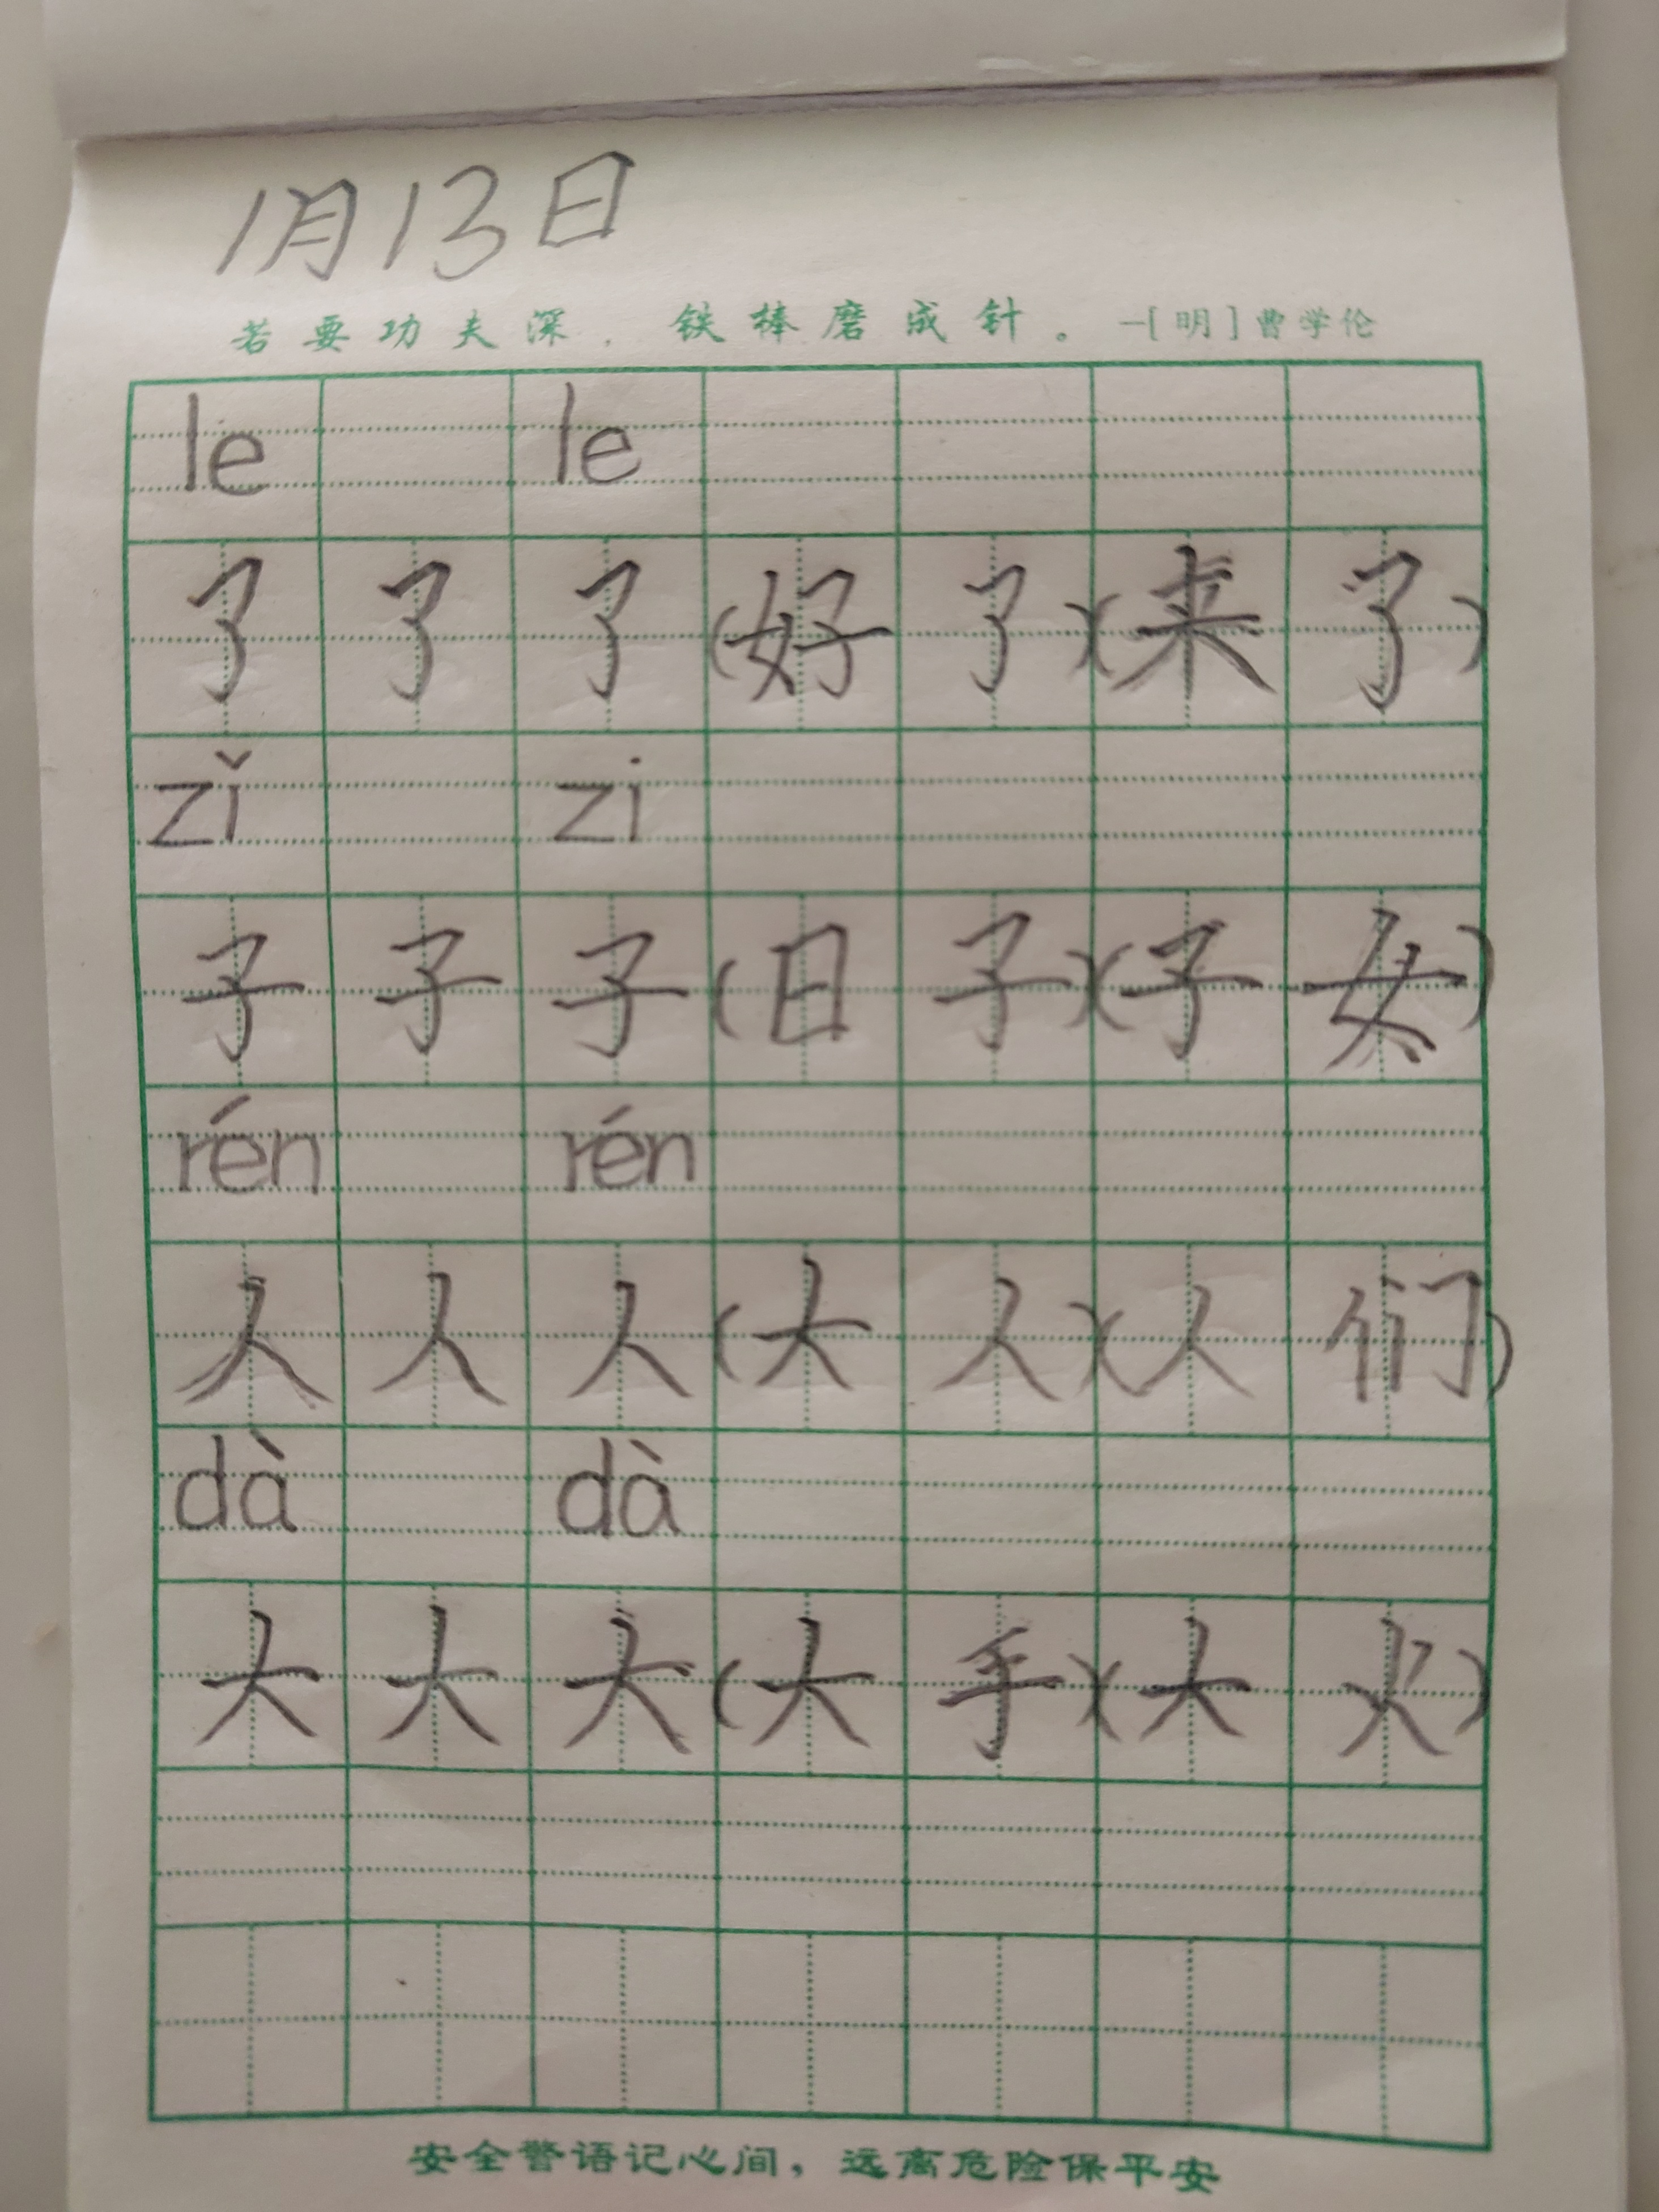 1月13日
若要功夫深，铁棒磨成针。—[明]曹学伦
le le
了了了(好了)(来了)
zǐ zi
子子子(日子)(子女)
rén rén
人人人(大人)(人们)
dà dà
大大大(大手)(大火)
安全警语记心间，远离危险保平安